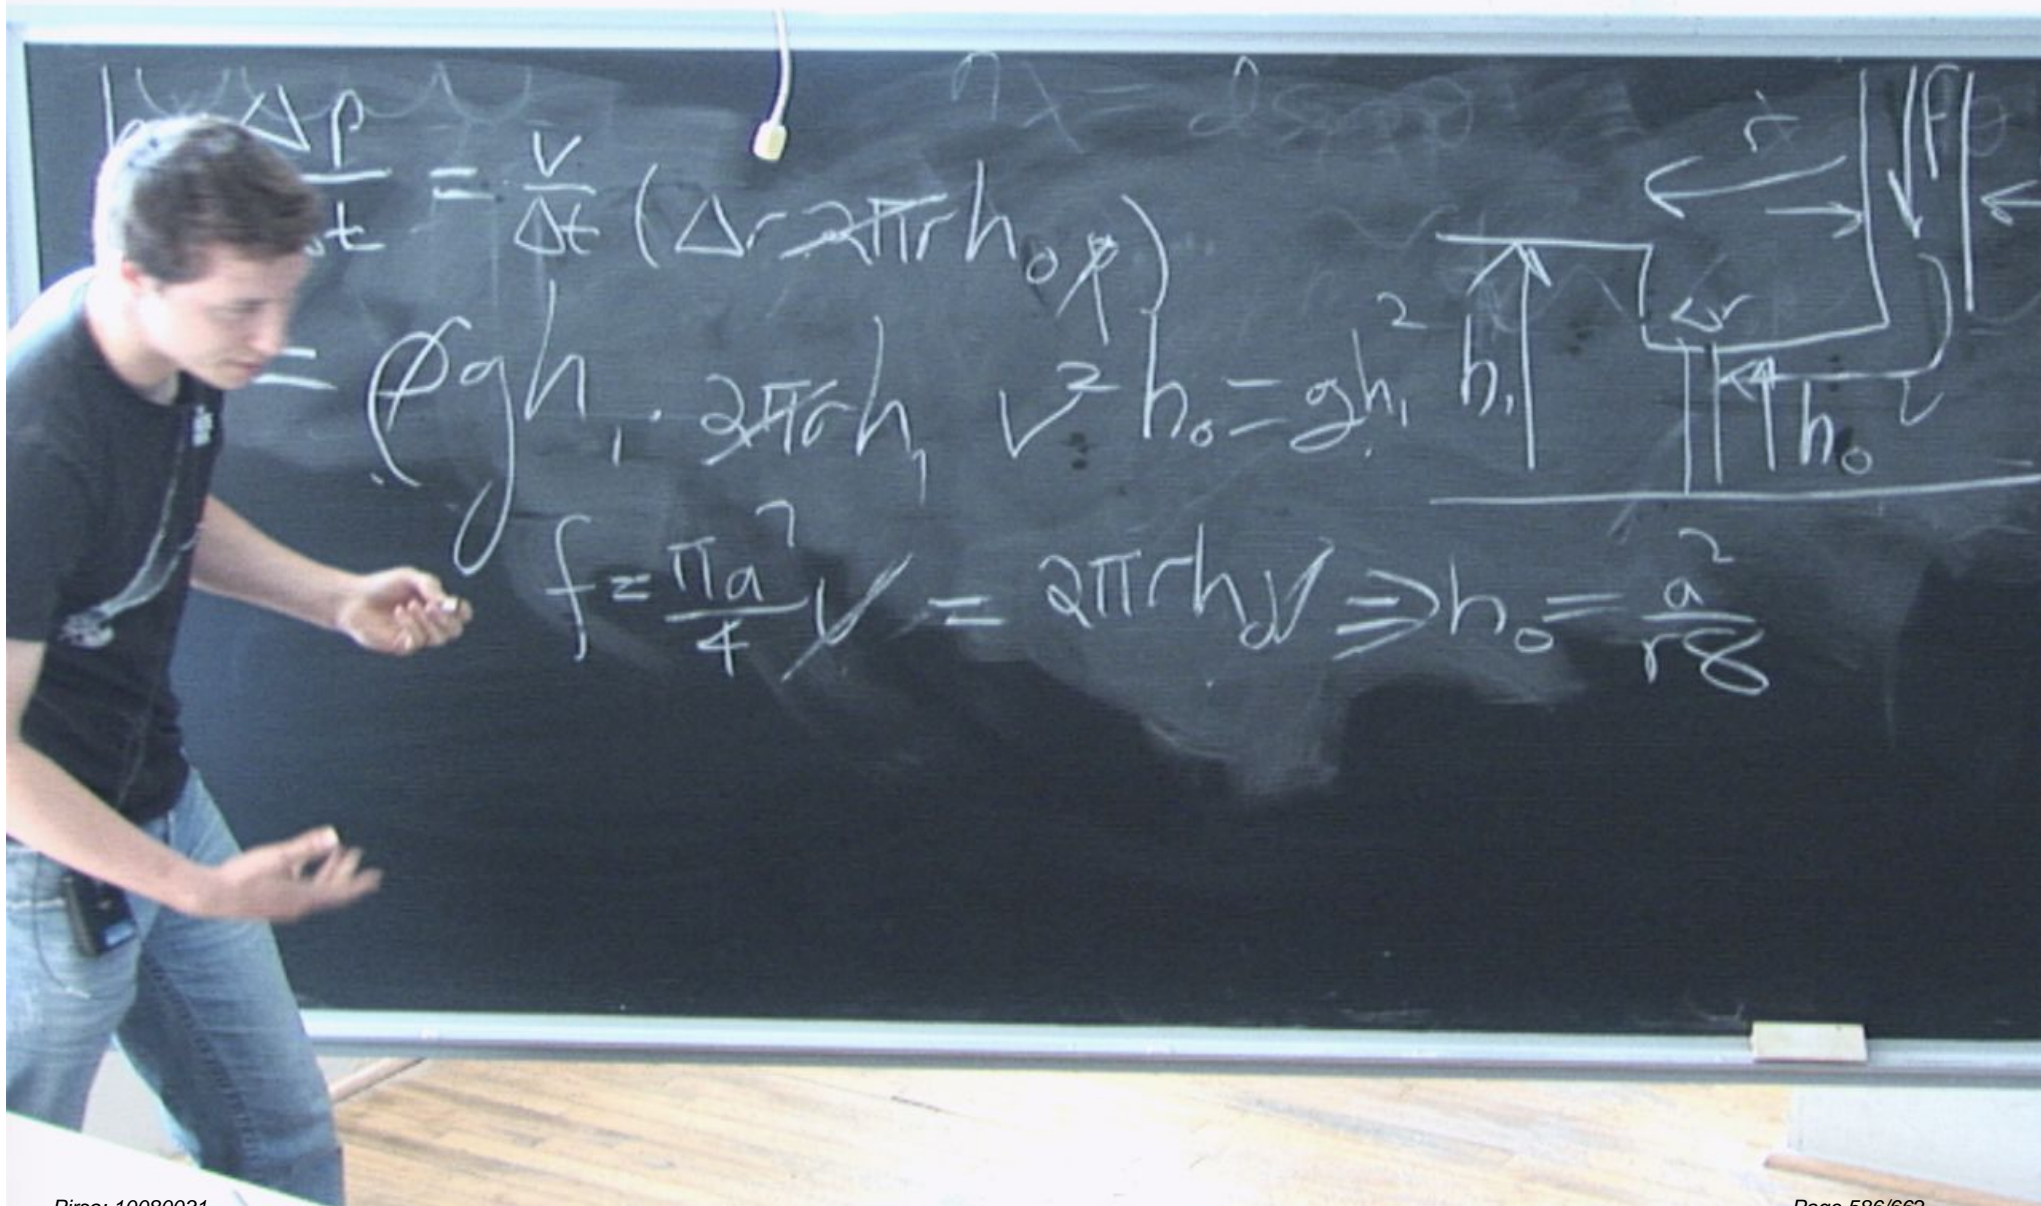 Δp/Δt = v/Δt (Δr 2πr h₀ ρ)
= ρgh₁ · 2πrh₁   v² h₀ = gh₁²
f = πa²/4 v = 2πrh₀v ⇒ h₀ = a²/r8
r
f
Δr
h₁
h₀
Pirsa: 10080021
Page 586/662